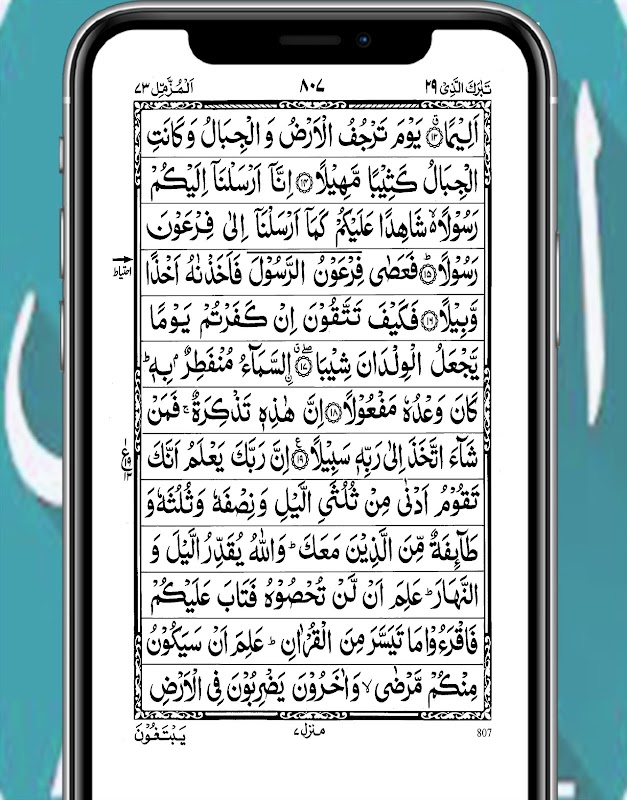 تَبٰرَكَ الَّذِىْ ٢٩ ٨٠٧ اَلْمُزَّمِّل ٧٣
اَلِيْمًا ۙ﴿۱۳﴾ يَوْمَ تَرْجُفُ الْاَرْضُ وَ الْجِبَالُ وَ كَانَتِ
الْجِبَالُ كَثِيْبًا مَّهِيْلًا ﴿۱۴﴾ اِنَّاۤ اَرْسَلْنَاۤ اِلَيْكُمْ
رَسُوْلًا ۙ۬ شَاهِدًا عَلَيْكُمْ كَمَاۤ اَرْسَلْنَاۤ اِلٰى فِرْعَوْنَ
رَسُوْلًا ؕ﴿۱۵﴾ فَعَصٰى فِرْعَوْنُ الرَّسُوْلَ فَاَخَذْنٰهُ اَخْذًا
احتیاط
وَّبِيْلًا ﴿۱۶﴾ فَكَيْفَ تَتَّقُوْنَ اِنْ كَفَرْتُمْ يَوْمًا
يَّجْعَلُ الْوِلْدَانَ شِيْبَا ۗۖ﴿۱۷﴾ اۨلسَّمَآءُ مُنْفَطِرٌۢ بِهٖ ؕ
كَانَ وَعْدُهٗ مَفْعُوْلًا ﴿۱۸﴾ اِنَّ هٰذِهٖ تَذْكِرَةٌ ۚ فَمَنْ
شَآءَ اتَّخَذَ اِلٰى رَبِّهٖ سَبِيْلًا ﴿۱۹﴾ اِنَّ رَبَّكَ يَعْلَمُ اَنَّكَ
تَقُوْمُ اَدْنٰى مِنْ ثُلُثَىِ الَّيْلِ وَ نِصْفَهٗ وَ ثُلُثَهٗ وَ
طَآئِفَةٌ مِّنَ الَّذِيْنَ مَعَكَ ؕ وَ اللّٰهُ يُقَدِّرُ الَّيْلَ وَ
النَّهَارَ ؕ عَلِمَ اَنْ لَّنْ تُحْصُوْهُ فَتَابَ عَلَيْكُمْ
فَاقْرَءُوْا مَا تَيَسَّرَ مِنَ الْقُرْاٰنِ ؕ عَلِمَ اَنْ سَيَكُوْنُ
مِنْكُمْ مَّرْضٰى ۙ وَ اٰخَرُوْنَ يَضْرِبُوْنَ فِى الْاَرْضِ
807 منزل ٧ يَبْتَغُوْنَ